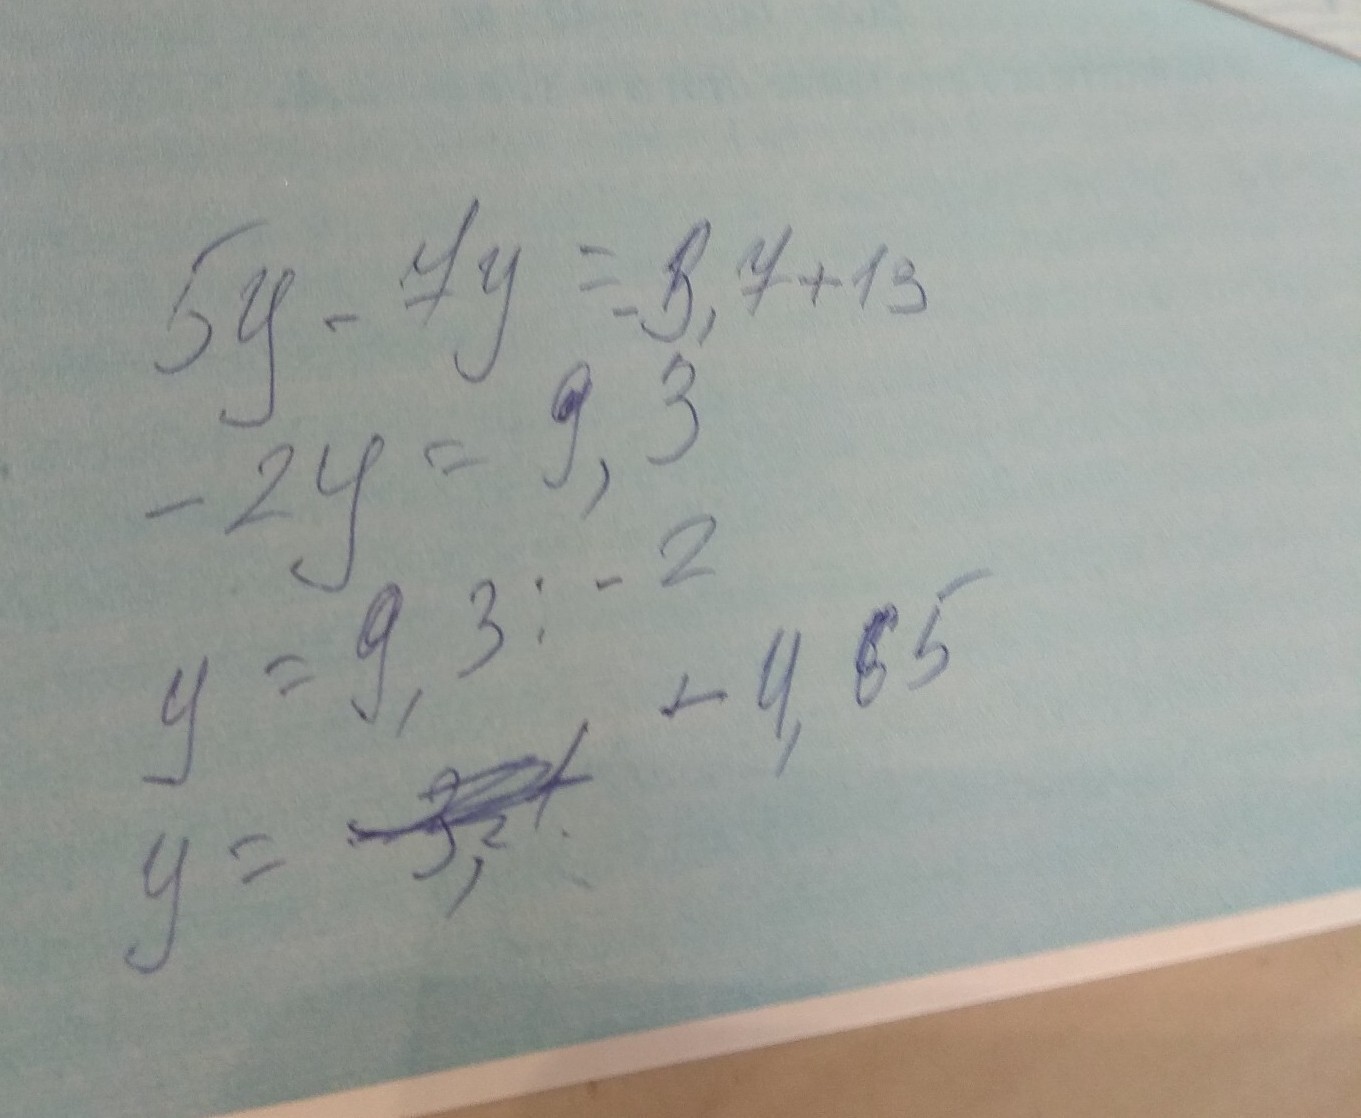 5y - 7y = -3,7 + 13
-2y = 9,3
y = 9,3 : -2
y = -4,65